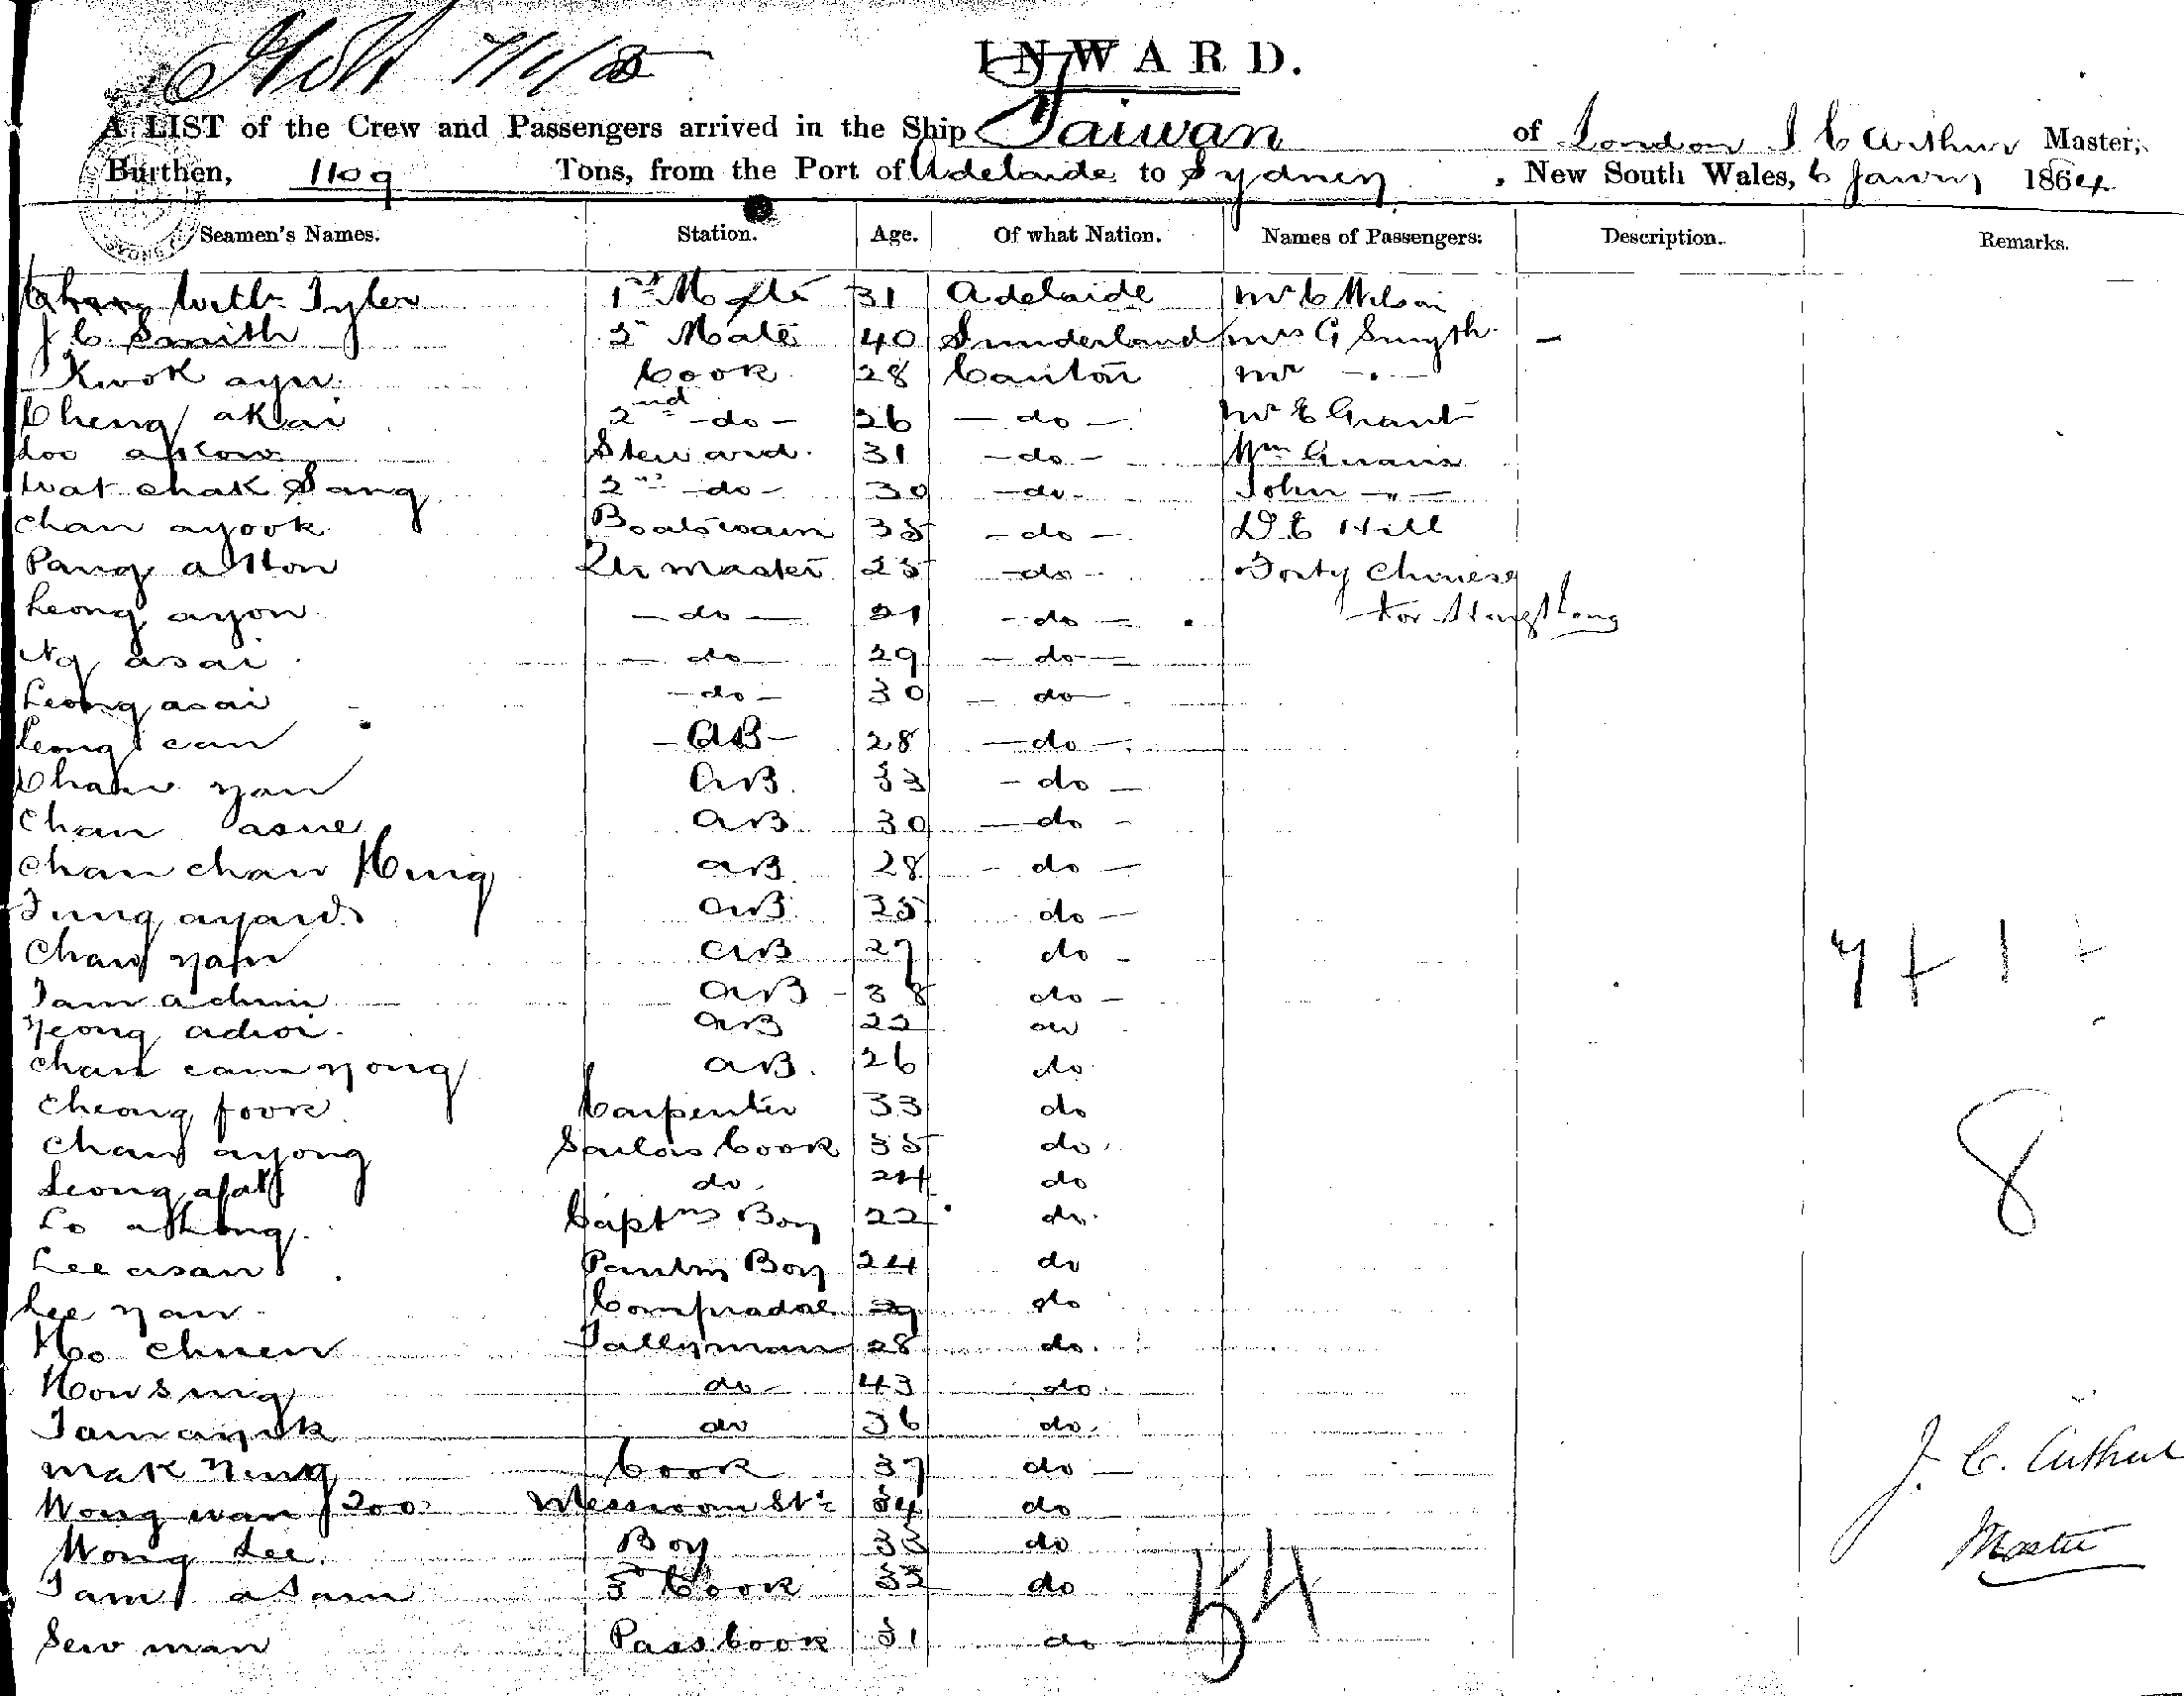 Holt 7/1/8
INWARD.
A LIST of the Crew and Passengers arrived in the Ship Taiwan of London J C Arthur Master,
Burthen, 1109 Tons, from the Port of Adelaide to Sydney, New South Wales, 6 January 1884
Seamen's Names. Station. Age. Of what Nation. Names of Passengers: Description. Remarks.
Willm Tyler 1st Mate 31 Adelaide Mr C Wilson
J C Smith 2d Mate 40 Sunderland Mrs G Smyth —
Kwok ayu Cook 28 Canton Mr — " —
Cheng akai 2nd - do - 26 — do — Mr E Grant
Loo Steward 31 - do - Wm
Wat chak Sang 2nd - do - 30 - do - John — " —
Chan ayook Boatswain 35 - do - D E Hill
Pang Qr master 25 - do - Forty Chinese
Leong ayon — do — 21 - do — for Hong Kong
Ng asai — do — 29 — do —
Leong asai - do - 30 — do —
Leong can - AB - 28 — do —
Chan yan AB. 33 - do —
Chan asue AB 30 — do -
Chan chan Hing AB 28 - do —
Tung AB 35 do —
Chan yan AB 27 do -
Tam achui AB - 38 do -
Yeong achoi AB 22 do
Chan cam yong AB. 26 do
Cheong fook Carpenter 33 do
Chan ayong Sailors Cook 35 do
Leong afat do 24 do
Lo Captns Boy 22 do
Lee asan Pantry Boy 24 do
Lee yan Compradore 29 do
Ho chuen Tallyman 28 do
How sing do 43 do
Tam do 36 do
Mak Ning Cook 37 do —
Wong wan Messroom St 34 do
Wong Lee Boy 33 do
Tam asam 3d Cook 32 do
Sew man Pass Cook 31 do
7 + 1 +
8
54
J. C. Arthur
Master